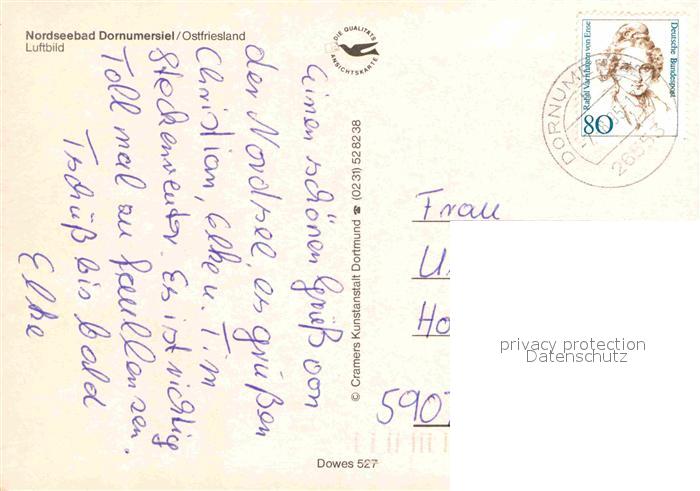 Nordseebad Dornumersiel/Ostfriesland
Luftbild
DIE QUALITÄTS
ANSICHTSKARTE
Einen schönen Gruß von
der Nordsee, es grüßen
Christian, Elke u. Tim
Steckenreuter. Es ist richtig
Toll mal zu faullenzen.
Tschüß bis bald
Elke
© Cramers Kunstanstalt Dortmund ☎ (0231) 528238
Dowes 527
Rahel Varnhagen von Ense
Deutsche Bundespost
80
DORNUM
26553
Frau
U
Ho
5907
privacy protection
Datenschutz